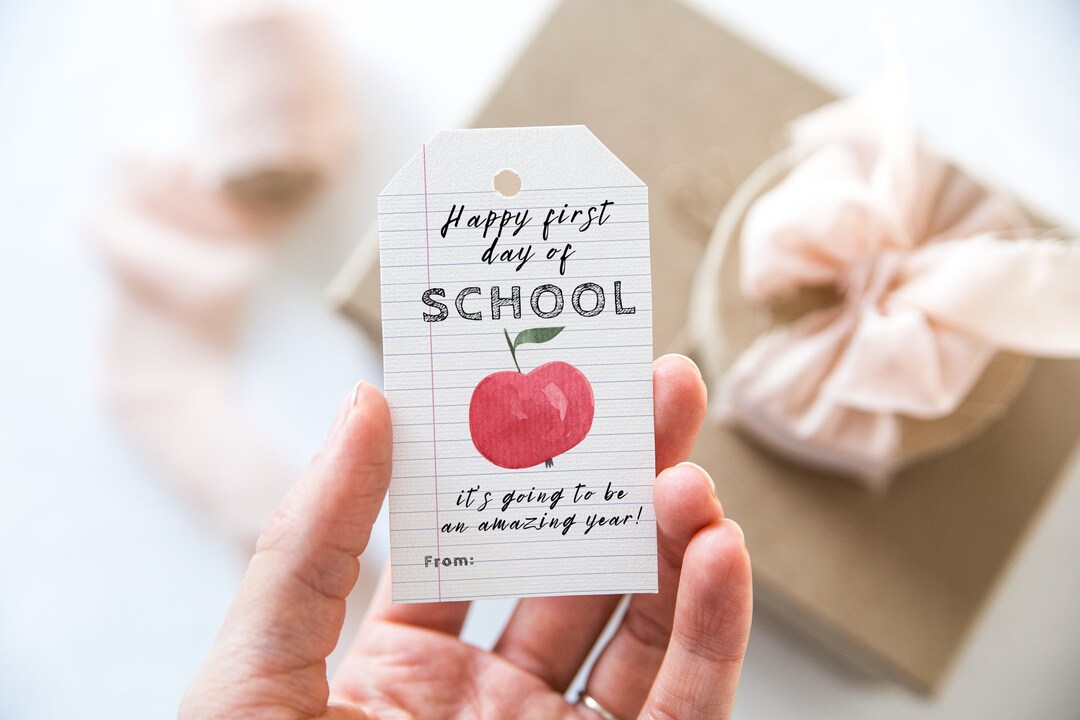 Happy first
day of
SCHOOL
it's going to be
an amazing year!
From: